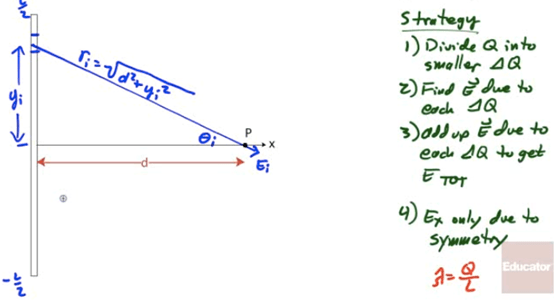 L/2
r_i = √d²+y_i²
y_i
θ_i
P
x
E_i
d
-L/2
Strategy
1) Divide Q into
smaller ΔQ
2) Find E⃗ due to
each ΔQ
3) add up E⃗ due to
each ΔQ to get
E_TOT
4) Ex only due to
symmetry
λ=Q/L
Educator